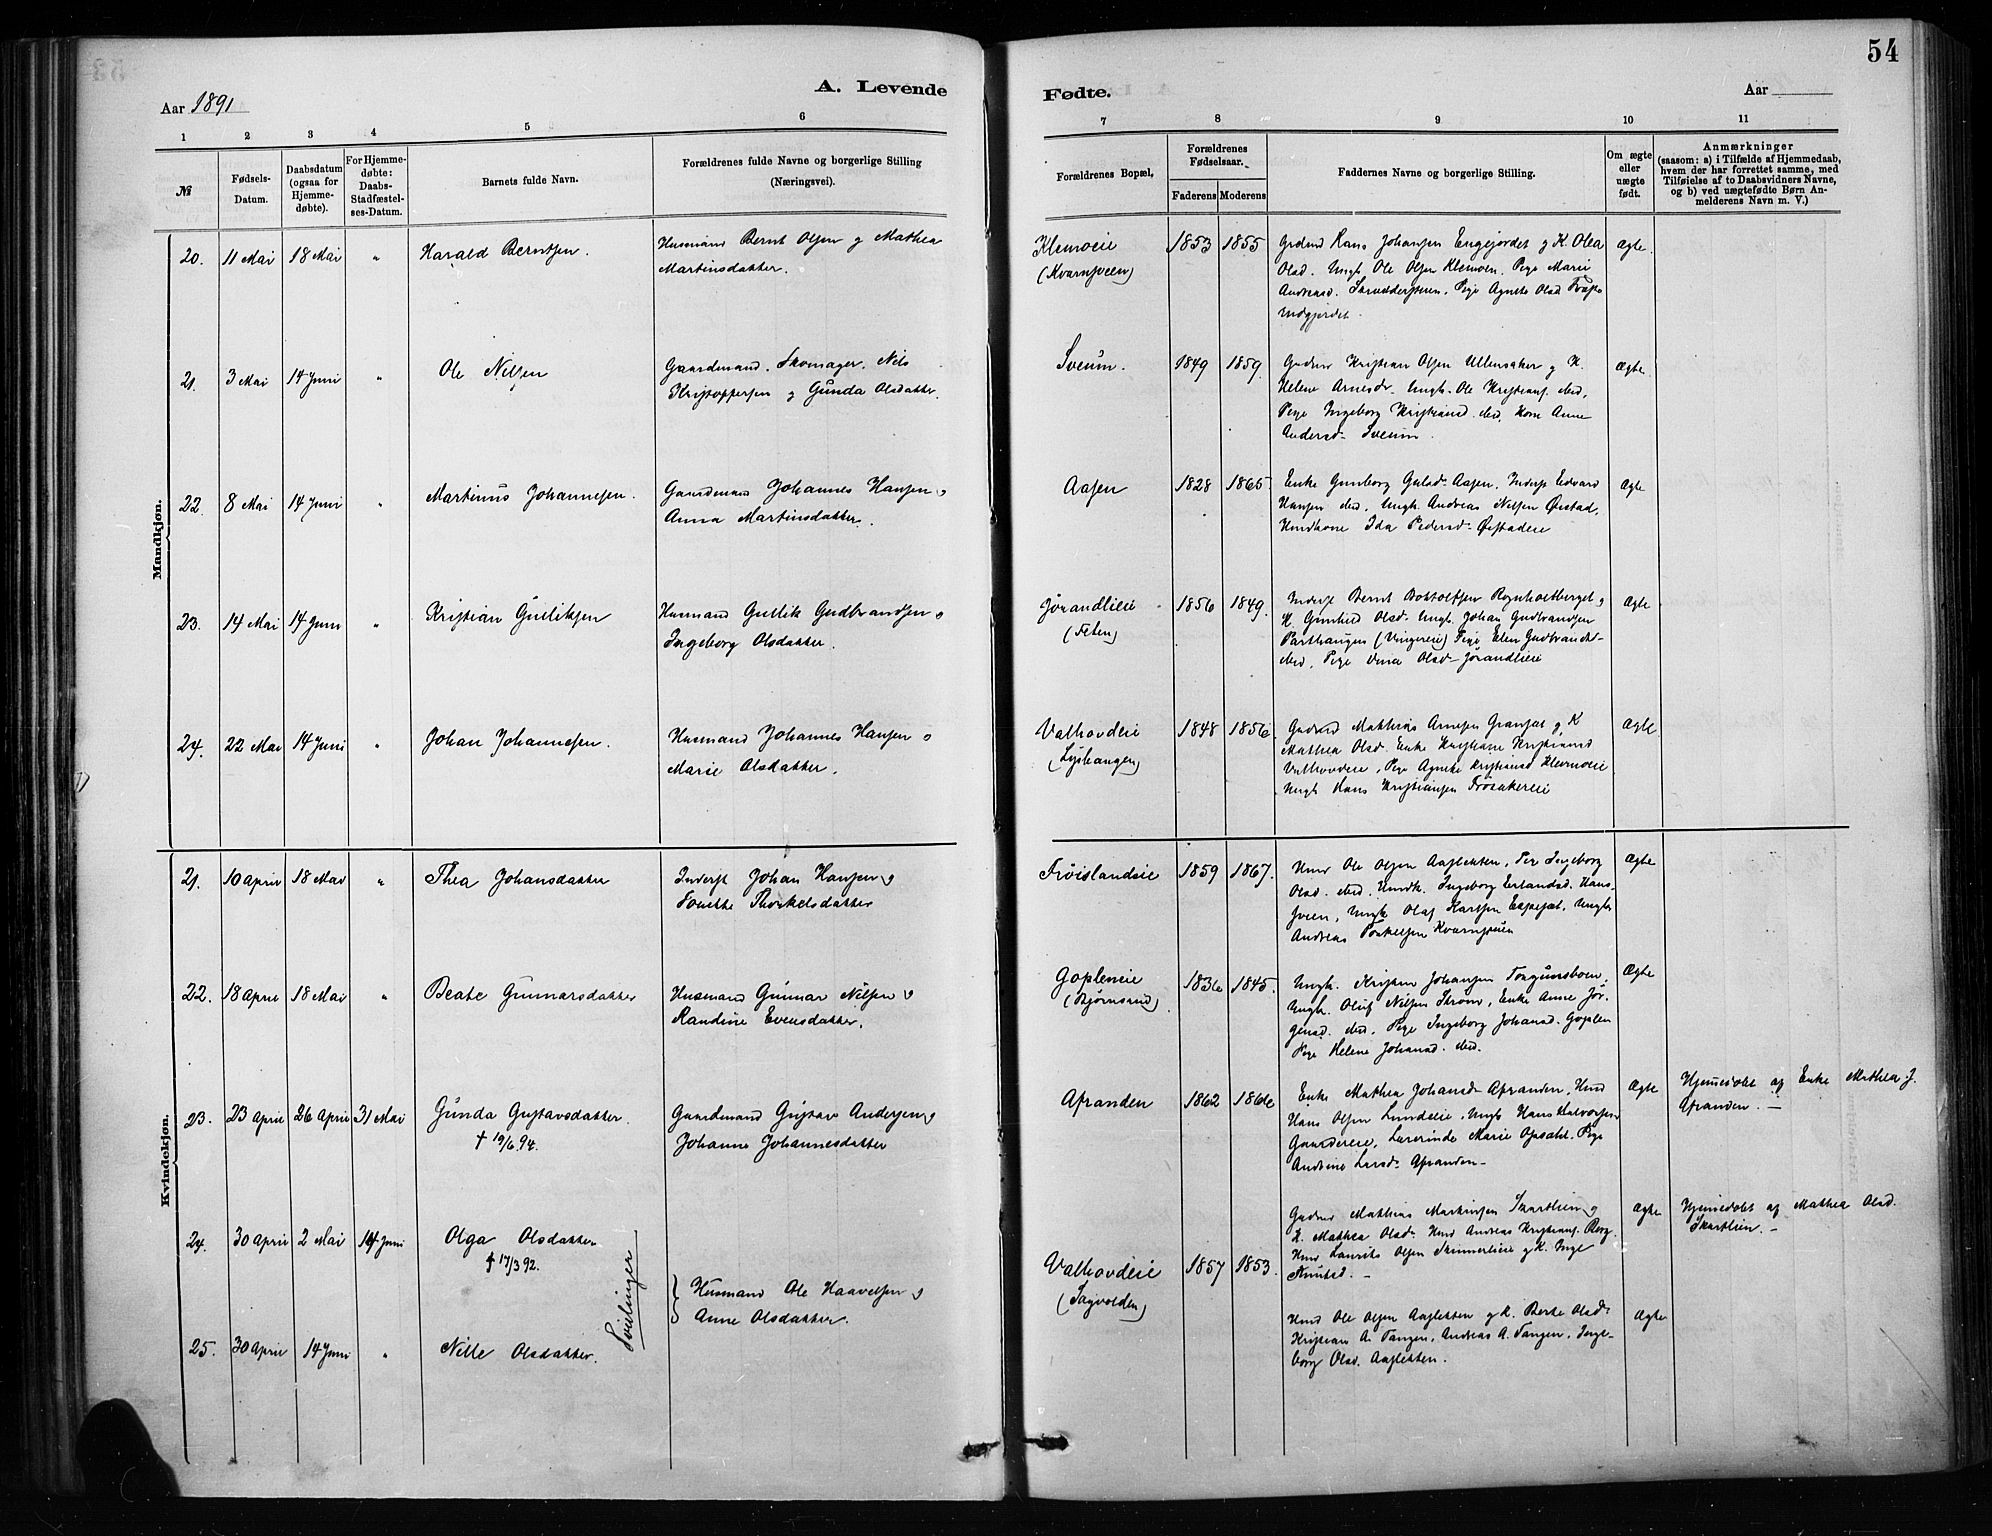 54
A. Levende
Fødte.
Aar 1891
Aar
1 2 3 4 5 6
7 8 9 10 11
№
Fødsels-Datum.
Daabsdatum (ogsaa for Hjemme-døbte).
For Hjemme-døbte: Daabs-Stadfæstel-ses-Datum.
Barnets fulde Navn.
Forældrenes fulde Navne og borgerlige Stilling
(Næringsvei).
Forældrenes Bopæl,
Forældrenes Fødselsaar.
Faderens Moderens
Faddernes Navne og borgerlige Stilling.
Om ægte eller uægte født.
Anmærkninger
(saasom: a) i Tilfælde af Hjemmedaab,
hvem der har forrettet samme, med
Tilføielse af to Daabsvidners Navne,
og b) ved uægtefødte Børn An-
melderens Navn m. V.)
Mandkjøn.
20. 11 Mai 18 Mai " Harald Berntsen.
Husmand Bernt Olsen og Mathea
Martinsdatter.
Klemoeie
(Kvarnsveen)
1853 1855
Grdmd Hans Johansen Engejordet og K. Olea
Olsd. Ungk. Ole Olsen Klemoen. Pige Marie
Andreasd. Pige Agnete Olsd
Ægte
21. 3 Mai 14 Juni " Ole Nilsen
Gaardmand, Skomager, Nils
Kristoffersen og Gunda Olsdatter.
Sveum.
1849 1859.
Grdmd Kristian Olsen Ullensaker og K.
Helene Arnesdr. Ungk. Ole Kristians. ibid,
Pige Ingeborg Kristiansd. ibid, Kone Anne
Andersd. Sveum.
Ægte
22. 8 Mai 14 Juni " Martinus Johannesen.
Gaardmand Johannes Hansen og
Anna Martinsdatter.
Aasen
1828 1865.
Enke Gunborg Aasen, Inders Edvard
Hansen ibid, Ungk. Andreas Nilsen Ørstad,
Husmkone Ida Pedersd.
Ægte
23. 14 Mai 14 Juni " Kristian Gulliksen
Husmand Gullik Gudbrandsen og
Ingeborg Olsdatter.
Jørandlieie
(Feten)
1856 1849.
Inderst Bernt
K. Gunhild Olsd. Ungk. Johan Gudbrandsen
Pige Elen Gudbrandsd.
ibid, Pige Olsd. Jørandlieie
Ægte
24. 22 Mai 14 Juni " Johan Johannesen.
Husmand Johannes Hansen og
Marie Olsdatter.
Valhovdeie
(Lyshaugen)
1848 1856.
Grdmd Mathias Arnesen og K
Mathea Olsd. Enke Kristiane Kristiansd
Valhovdeie, Pige Agnete Kristiansd Klevmoeie
Ungk Hans Kristiansen Frøsakereie
Ægte
Kvindekjøn.
21. 10 April 18 Mai " Thea Johansdatter
Inderst Johan Hansen og
Thorkelsdatter
Frøislandseie
1859 1867.
Husmd Ole Olsen Aasletten, Pige Ingeborg
Olsd. ibid. Husmk. Ingeborg Erlandsd. Hans-
sveen, Ungk Olaf Karlsen Espeset, Ungk
Andreas Torkelsen Kvarnsveen
Ægte
22. 18 April 18 Mai " Beate Gunnarsdatter
Husmand Gunnar Nilsen og
Randine Evensdatter.
Gopleneie
(Bjørnsund)
1836 1845.
Ungk. Kristen Johansen
Ungk. Oluf Nilsen Strøm, Enke Anne Jør-
gensd. ibid, Pige Ingeborg Johansd. Goplen
Pige Helene Johansd. ibid.
Ægte
23. 23 April 26 April 31 Mai Gunda Gustavsdatter.
† 19/6 94.
Gaardmand Gustav Andersen og
Johanne Johannesdatter
Afranden
1862 1866
Enke Mathea Johansd. Afranden, Husmd
Hans Olsen Lundeie, Ungk Hans Halvorsen
Gaardereie, Lærerinde Marie Opsahl, Pige
Andrine Larsd. Afranden
Ægte
Hjemmedøbt af Enke Mathea J.
Afranden. —
24. 30 April 2 Mai 14 Juni Olga Olsdatter
† 17/3 92.
Tvillinger
Husmand Ole Haavelsen og
Anne Olsdatter.
Valhovdeie
(Sagvolden)
1857 1853.
Grdmd Mathias Martinsen Skartlien og
K. Mathea Olsd. Husmd Andreas Kristians. Berg.
Husmd Laurits Olsen Skinnerlieie og K. Inge
Knutsd. —
Ægte
Hjemmedøbt af Mathea Olsd.
Skartlien. —
25. 30 April 14 Juni " Nille Olsdatter.
Husmd Ole Olsen Aasletten og K. Berte Olsdr
Kristian A. Tangen, Andreas A. Tangen, Inge-
borg Olsd. Aasletten.
Ægte